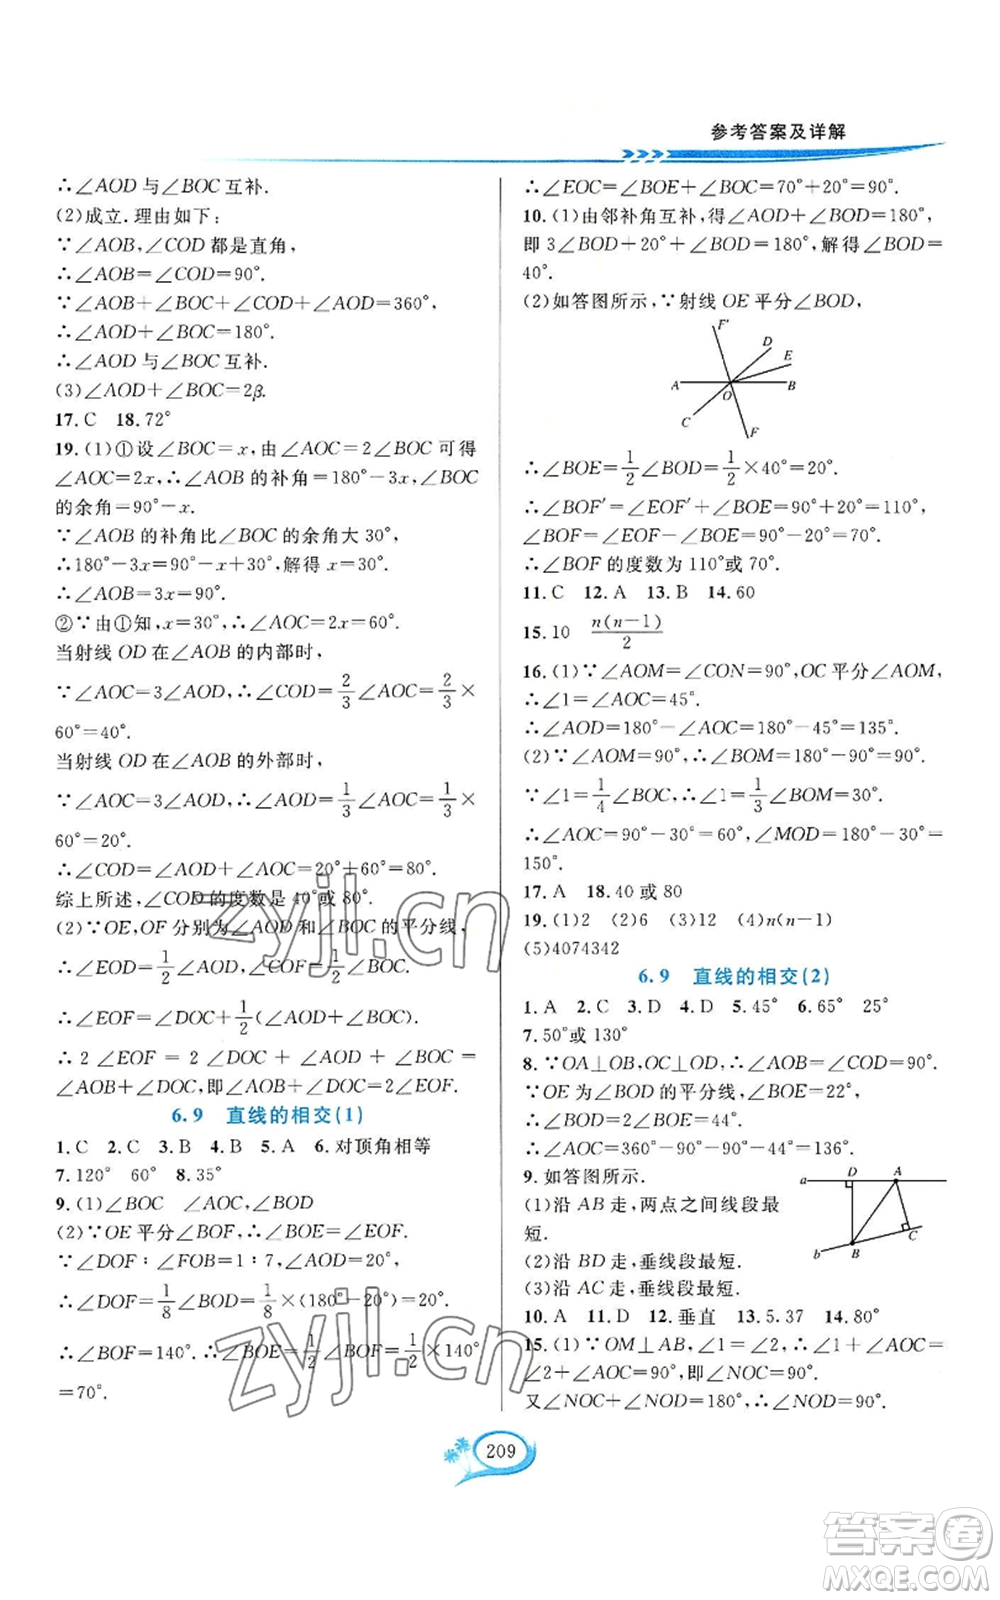 参考答案及详解
∴∠AOD与∠BOC互补.
(2)成立.理由如下:
∵∠AOB,∠COD都是直角,
∴∠AOB=∠COD=90°.
∵∠AOB+∠BOC+∠COD+∠AOD=360°,
∴∠AOD+∠BOC=180°.
∴∠AOD与∠BOC互补.
(3)∠AOD+∠BOC=2β.
17.C 18.72°
19.(1)①设∠BOC=x,由∠AOC=2∠BOC可得
∠AOC=2x,∴∠AOB的补角=180°-3x,∠BOC
的余角=90°-x.
∵∠AOB的补角比∠BOC的余角大30°,
∴180°-3x=90°-x+30°,解得x=30°.
∴∠AOB=3x=90°.
②∵由①知,x=30°,∴∠AOC=2x=60°.
当射线OD在∠AOB的内部时,
∵∠AOC=3∠AOD,∴∠COD=2/3∠AOC=2/3×
60°=40°.
当射线OD在∠AOB的外部时,
∵∠AOC=3∠AOD,∴∠AOD=1/3∠AOC=1/3×
60°=20°.
∴∠COD=∠AOD+∠AOC=20°+60°=80°.
综上所述,∠COD的度数是40°或80°.
(2)∵OE,OF分别为∠AOD和∠BOC的平分线,
∴∠EOD=1/2∠AOD,∠COF=1/2∠BOC.
∴∠EOF=∠DOC+1/2(∠AOD+∠BOC).
∴2∠EOF=2∠DOC+∠AOD+∠BOC=
∠AOB+∠DOC,即∠AOB+∠DOC=2∠EOF.
6.9 直线的相交(1)
1.C 2.C 3.B 4.B 5.A 6.对顶角相等
7.120° 60° 8.35°
9.(1)∠BOC ∠AOC,∠BOD
(2)∵OE平分∠BOF,∴∠BOE=∠EOF.
∵∠DOF:∠FOB=1:7,∠AOD=20°,
∴∠DOF=1/8∠BOD=1/8×(180°-20°)=20°.
∴∠BOF=140°.∴∠BOE=1/2∠BOF=1/2×140°
=70°.
∴∠EOC=∠BOE+∠BOC=70°+20°=90°.
10.(1)由邻补角互补,得∠AOD+∠BOD=180°,
即3∠BOD+20°+∠BOD=180°,解得∠BOD=
40°.
(2)如答图所示,∵射线OE平分∠BOD,
F′
D
E
A
O
B
C
F
∴∠BOE=1/2∠BOD=1/2×40°=20°.
∴∠BOF′=∠EOF′+∠BOE=90°+20°=110°,
∠BOF=∠EOF-∠BOE=90°-20°=70°.
∴∠BOF的度数为110°或70°.
11.C 12.A 13.B 14.60
15.10 n(n-1)/2
16.(1)∵∠AOM=∠CON=90°,OC平分∠AOM,
∴∠1=∠AOC=45°.
∴∠AOD=180°-∠AOC=180°-45°=135°.
(2)∵∠AOM=90°,∴∠BOM=180°-90°=90°.
∵∠1=1/4∠BOC,∴∠1=1/3∠BOM=30°.
∴∠AOC=90°-30°=60°,∠MOD=180°-30°=
150°.
17.A 18.40或80
19.(1)2 (2)6 (3)12 (4)n(n-1)
(5)4074342
6.9 直线的相交(2)
1.A 2.C 3.D 4.D 5.45° 6.65° 25°
7.50°或130°
8.∵OA⊥OB,OC⊥OD,∴∠AOB=∠COD=90°.
∵OE为∠BOD的平分线,∠BOE=22°,
∴∠BOD=2∠BOE=44°.
∴∠AOC=360°-90°-90°-44°=136°.
9.如答图所示.
(1)沿AB走,两点之间线段最
短.
(2)沿BD走,垂线段最短.
(3)沿AC走,垂线段最短.
D
A
a
C
b
B
10.A 11.D 12.垂直 13.5.37 14.80°
15.(1)∵OM⊥AB,∠1=∠2,∴∠1+∠AOC=
∠2+∠AOC=90°,即∠NOC=90°.
又∠NOC+∠NOD=180°,∴∠NOD=90°.
209
zyjl.cn
zyjl.cn
答案卷
MXQE.COM